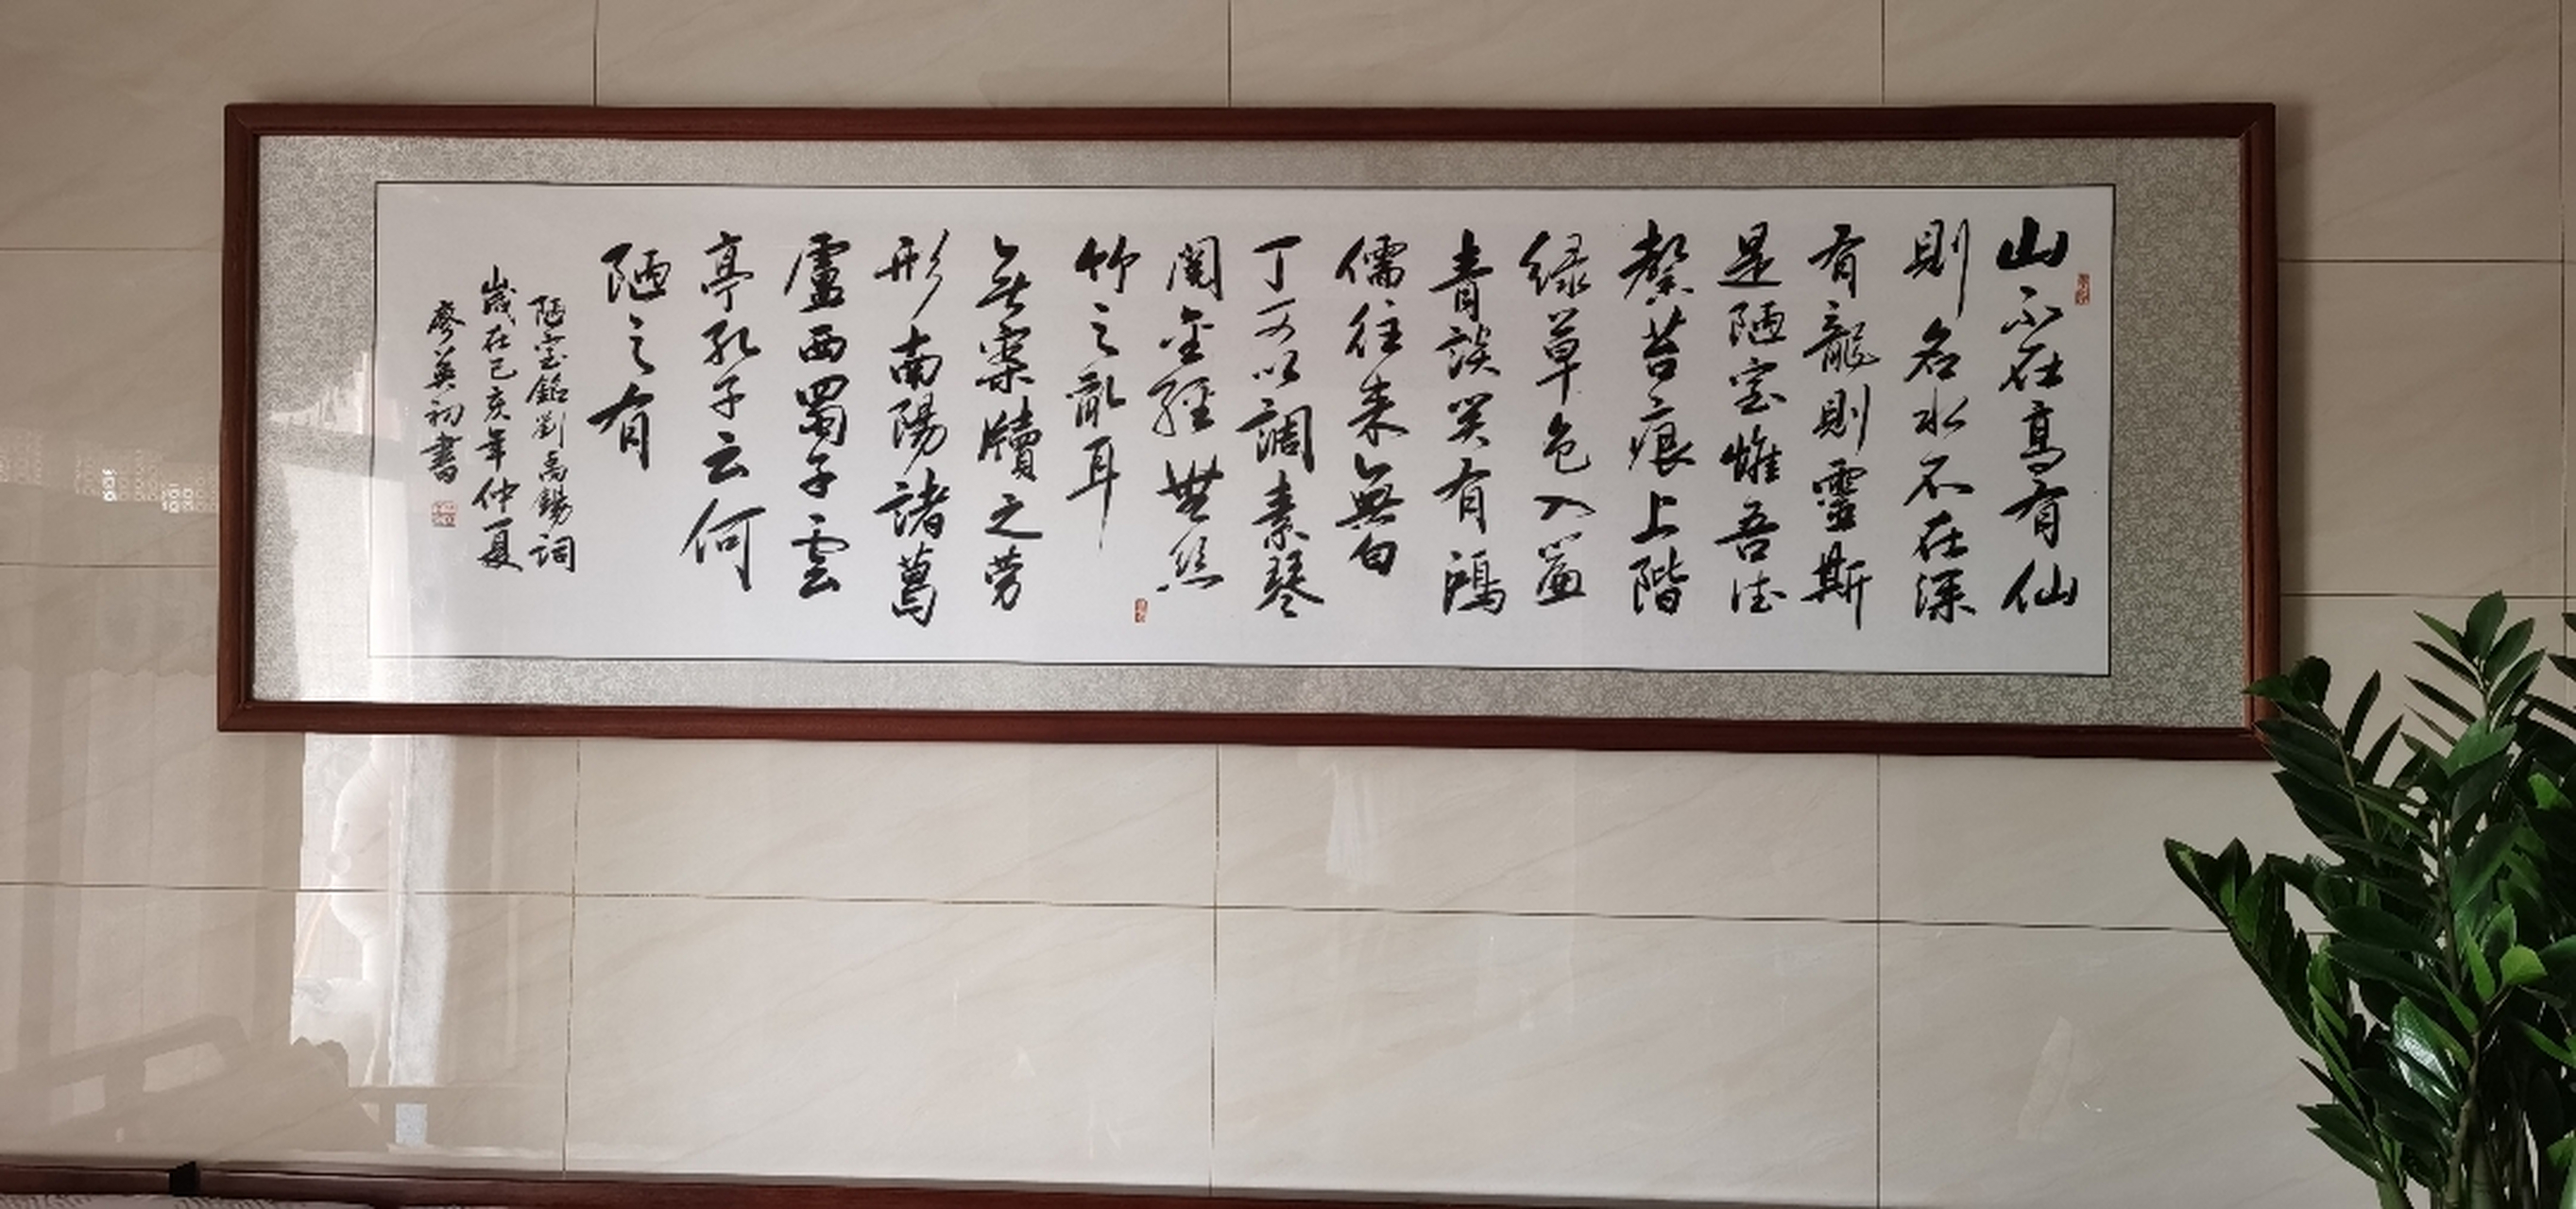 山不在高有仙
則名水不在深
有龍則靈斯
是陋室惟吾德
馨苔痕上階
绿草色入簾
青談笑有鴻
儒往来無白
丁可以調素琴
閱金經無絲
竹之亂耳
无案牘之劳
形南陽諸葛
盧西蜀子雲
亭孔子云何
陋之有
陋室銘劉禹錫詞
歲在己亥年仲夏
廖英初書